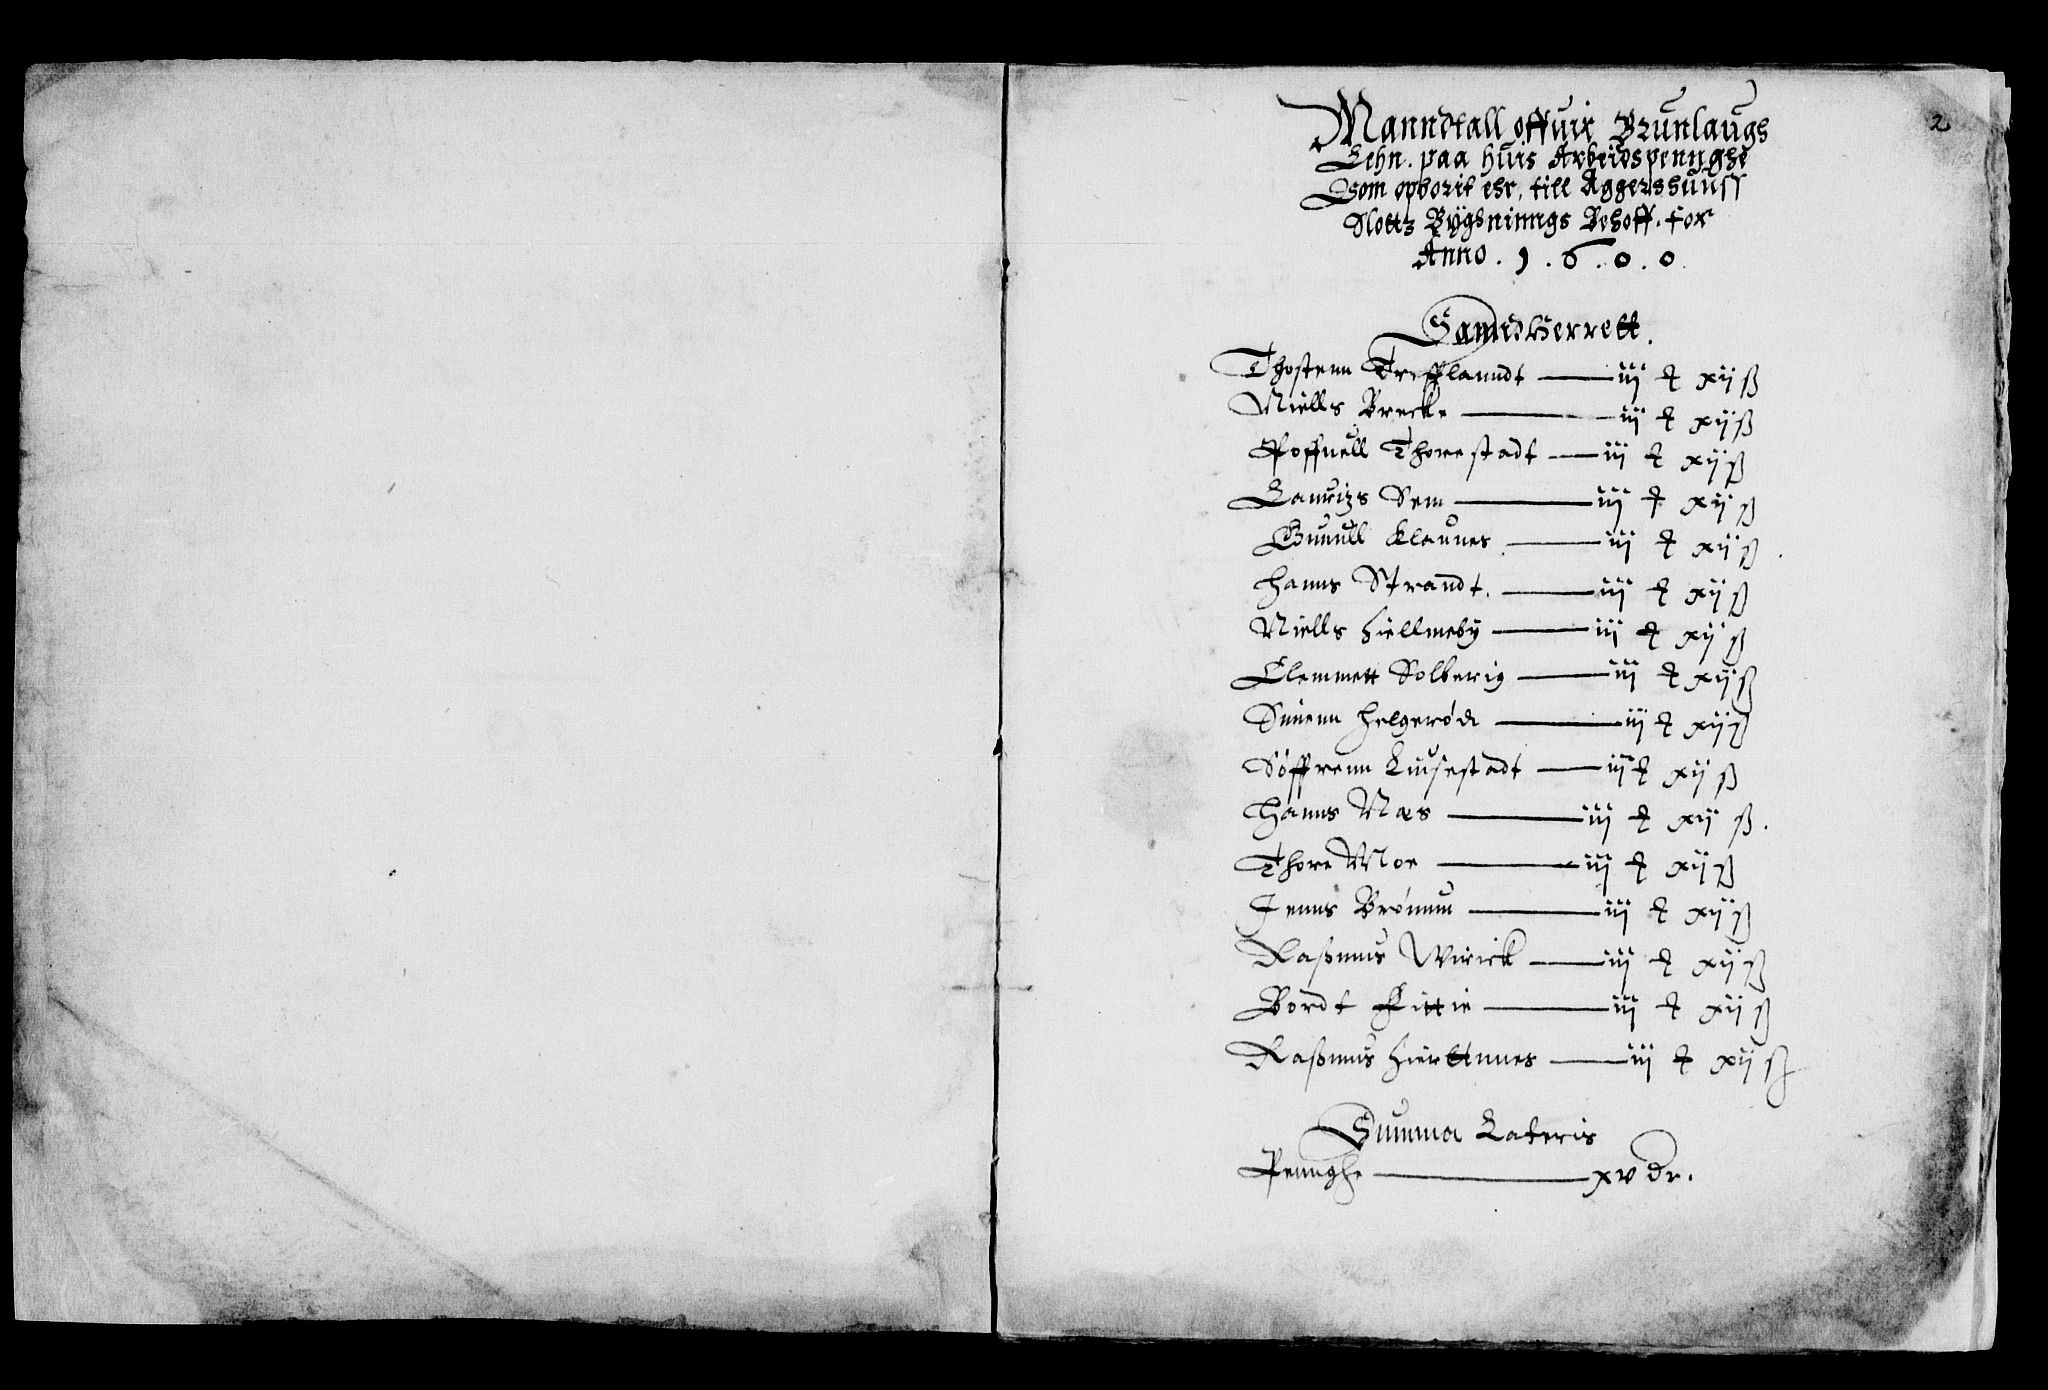 2
Manndtall offuir Brunlaugs
Lehn. paa huis Arbeidspennghe
Som opborit ehr, till Aggershuuss
Slottz Bÿghninngs Behoff. for
Anno. 1.6.0.0.
Sanndherrett.
Thostenn Trefflanndt — iij ꝳ xij ß
Niells Brecke — iij ꝳ xij ß
Poffuell Thorestadt — iij ꝳ xij ß
Lauritzs Sem — iij ꝳ xij ß
Gunull Klaunes — iij ꝳ xij ß
Hanns Strandt. — iij ꝳ xij ß
Niells Hiellmebÿ — iij ꝳ xij ß
Clemmett Solberig — iij ꝳ xij ß
Suenn Helgerødt — iij ꝳ xij ß
Søffrenn Liusestadt — iij ꝳ xij ß
Hanns Næs — iij ꝳ xij ß.
Thore Moe — iij ꝳ xij ß
Jenns Brønum — iij ꝳ xij ß
Rasmus Wirick — iij ꝳ xij ß
Bordt Kittie — iij ꝳ xij ß
Rasmus Hierttnnes — iij ꝳ xij ß
Summa Lateris
Pennghe — xv dr.